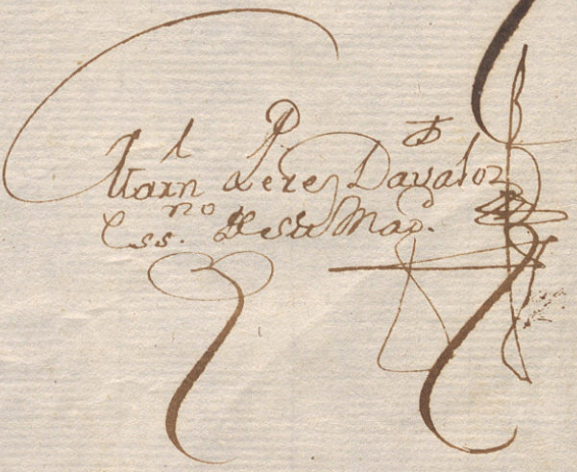 Perez Davalos
Essno. de su Magd.